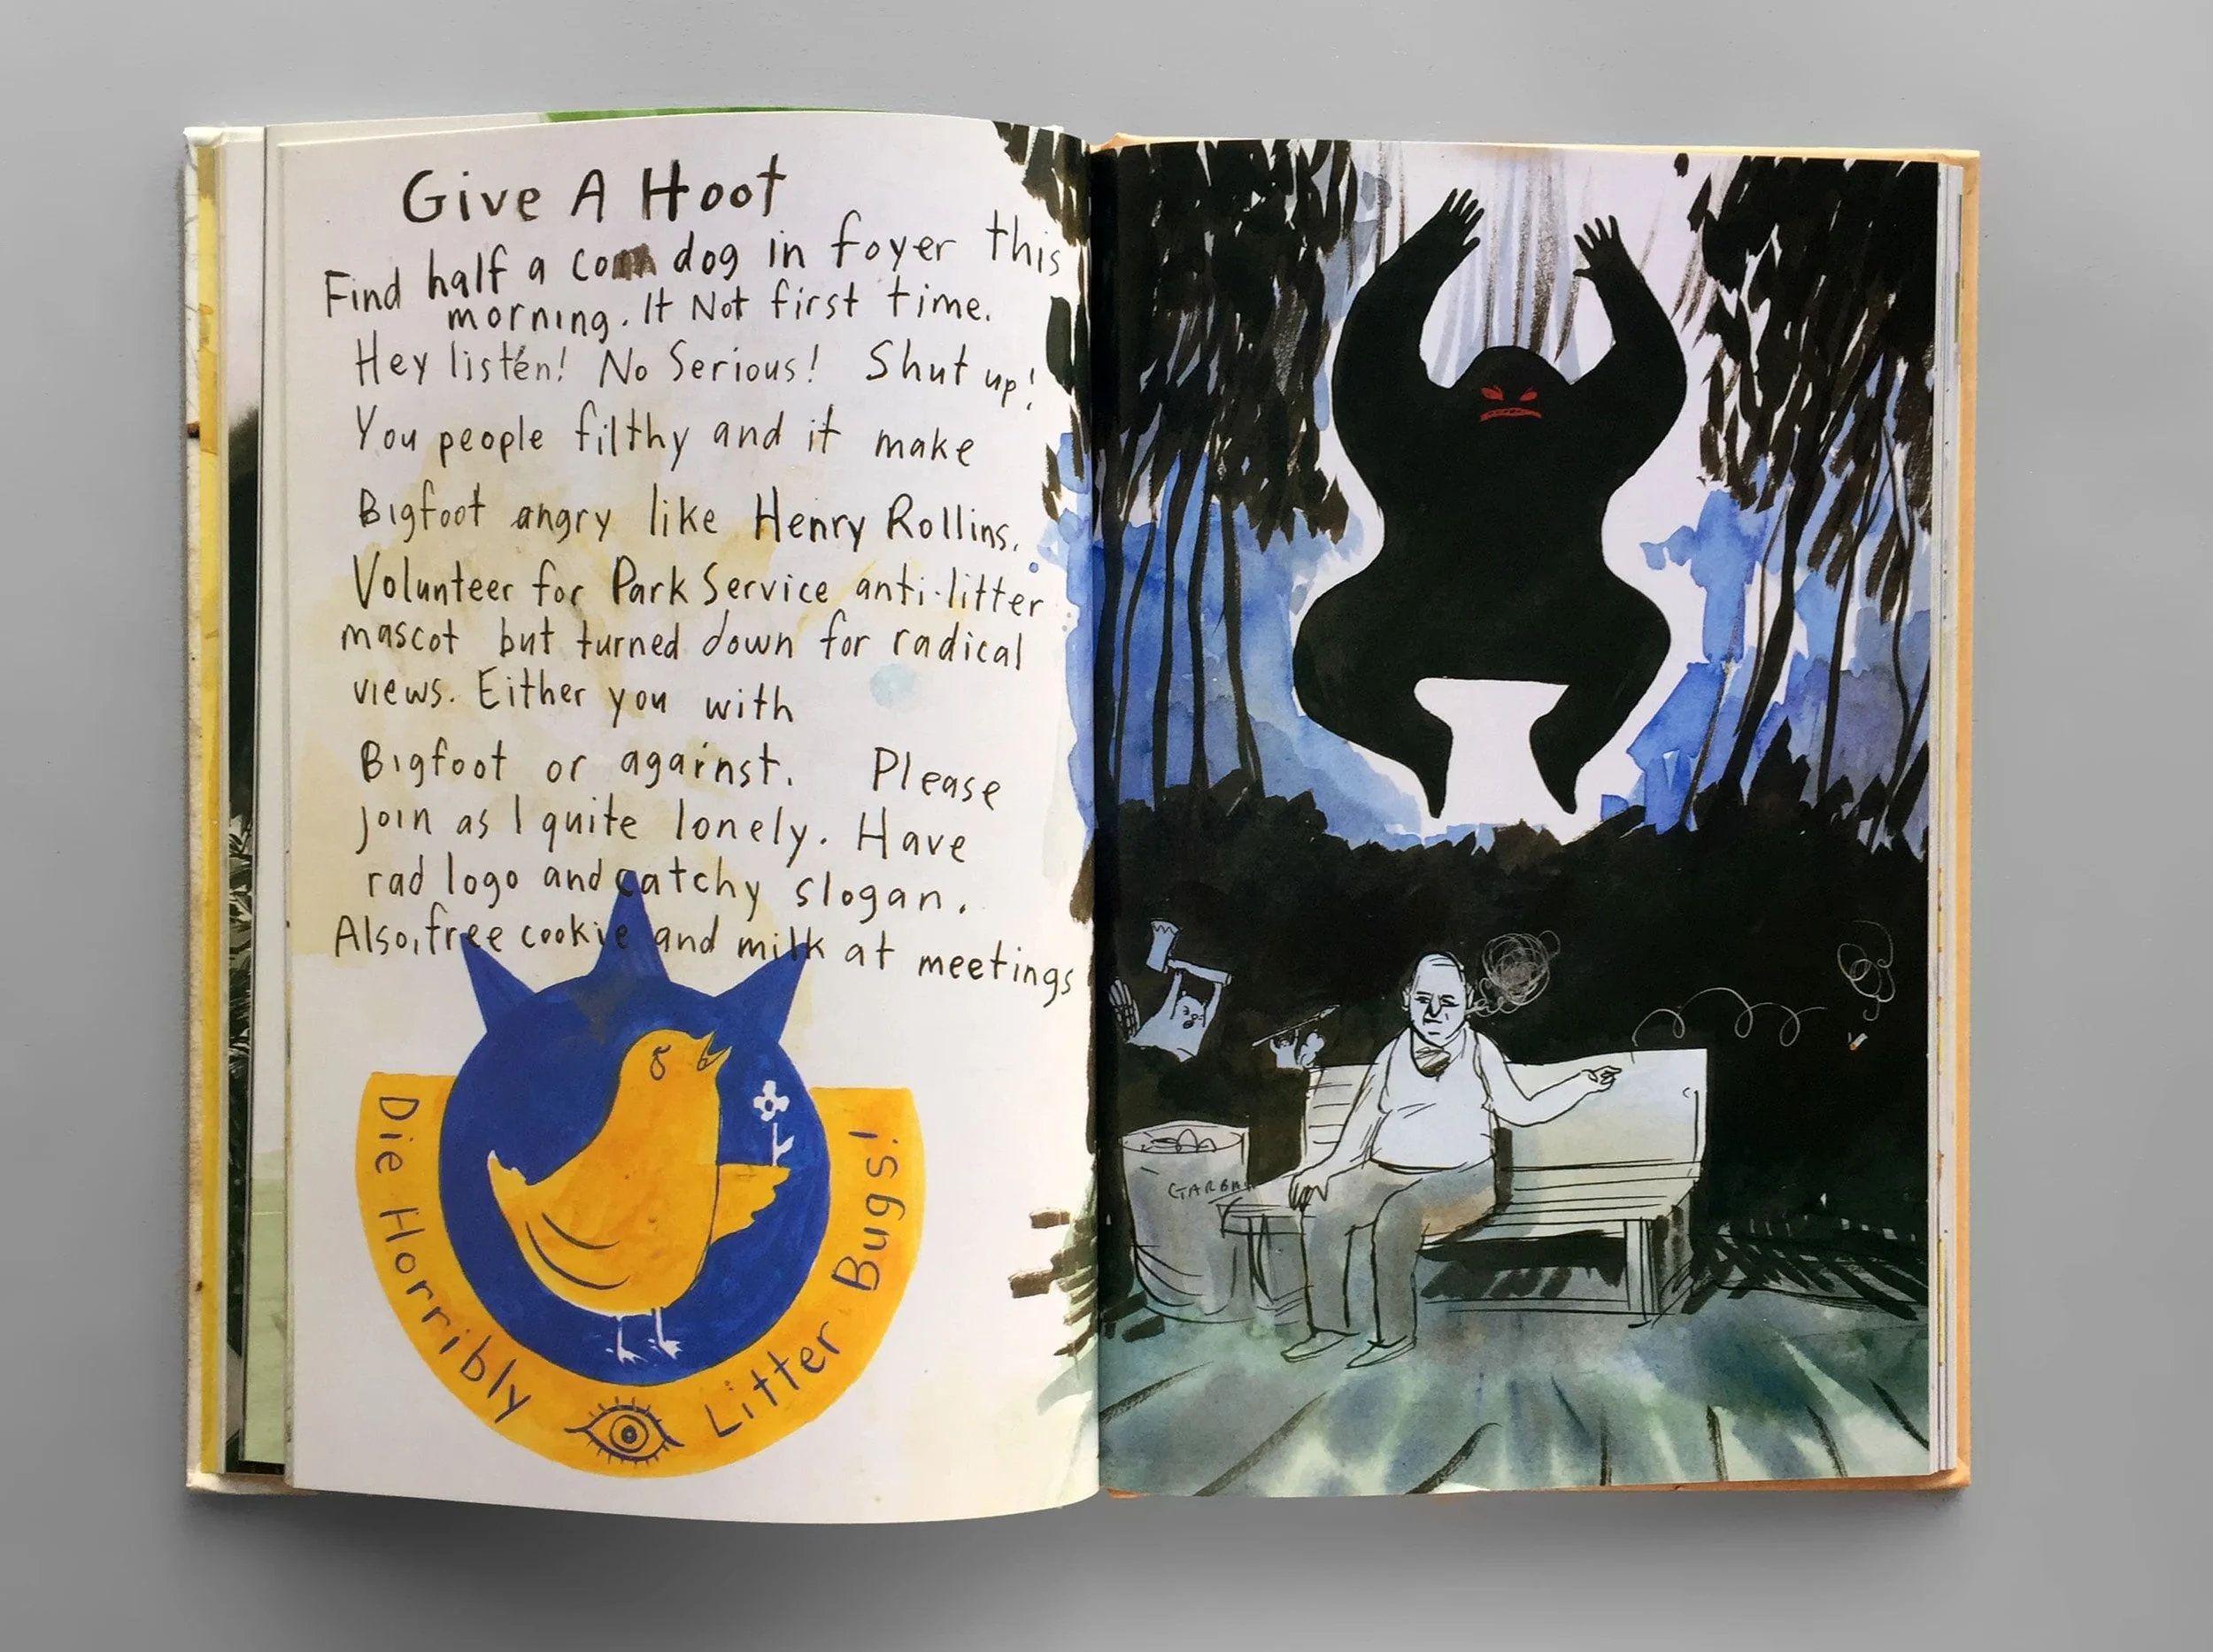 Give A Hoot
Find half a corn dog in foyer this
morning. It Not first time.
Hey listen! No Serious! Shut up!
You people filthy and it make
Bigfoot angry like Henry Rollins.
Volunteer for Park Service anti-litter
mascot but turned down for radical
views. Either you with
Bigfoot or against. Please
join as I quite lonely. Have
rad logo and catchy slogan.
Also, free cookie and milk at meetings
Die Horribly Litter Bugs!